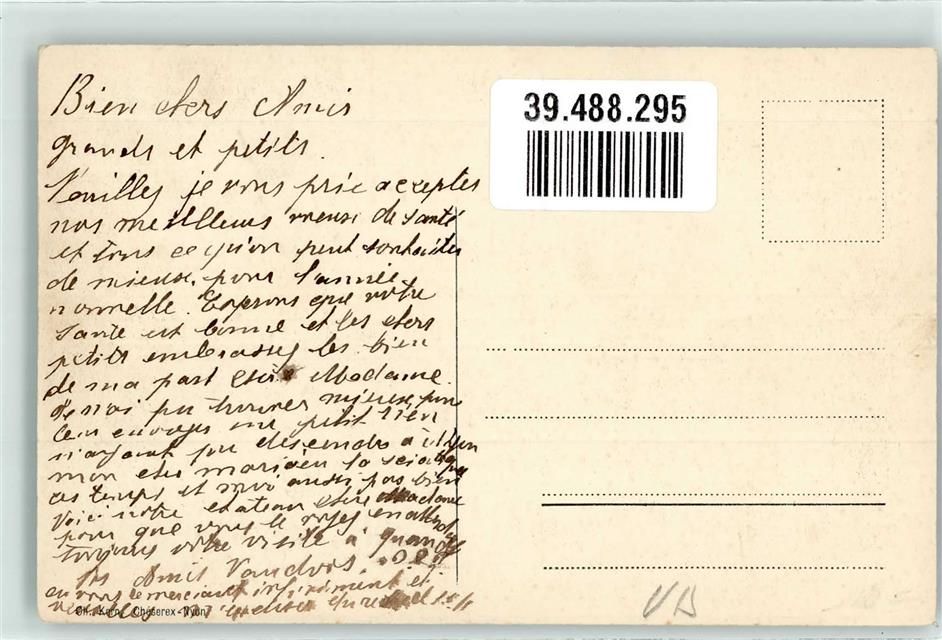 Bien chers Amis
grands et petits.
Veuilley je vous prie accepter
nos meilleurs vœux de santé
et tous ce qu'on peut souhaiter
de mieux, pour l'année
nouvelle. Esperons que votre
santé est bonne et les chers
petits embrassey les bien
de ma part chère Madame.
Je nai pu trouver mieux pour
leur envoyer un petit rien
n'ayant pu descendre à Nyon
mon cher mari a eu la sciatique
ces temps et moi aussi pas bien
Voici notre chateau chère Madame
pour que vous le voyez en attend
toujours votre visite à quand
les Amis Vaudois.
en vous remerciant infiniment et
39.488.295
Ch. Kern, Chéserex-Nyon
VB